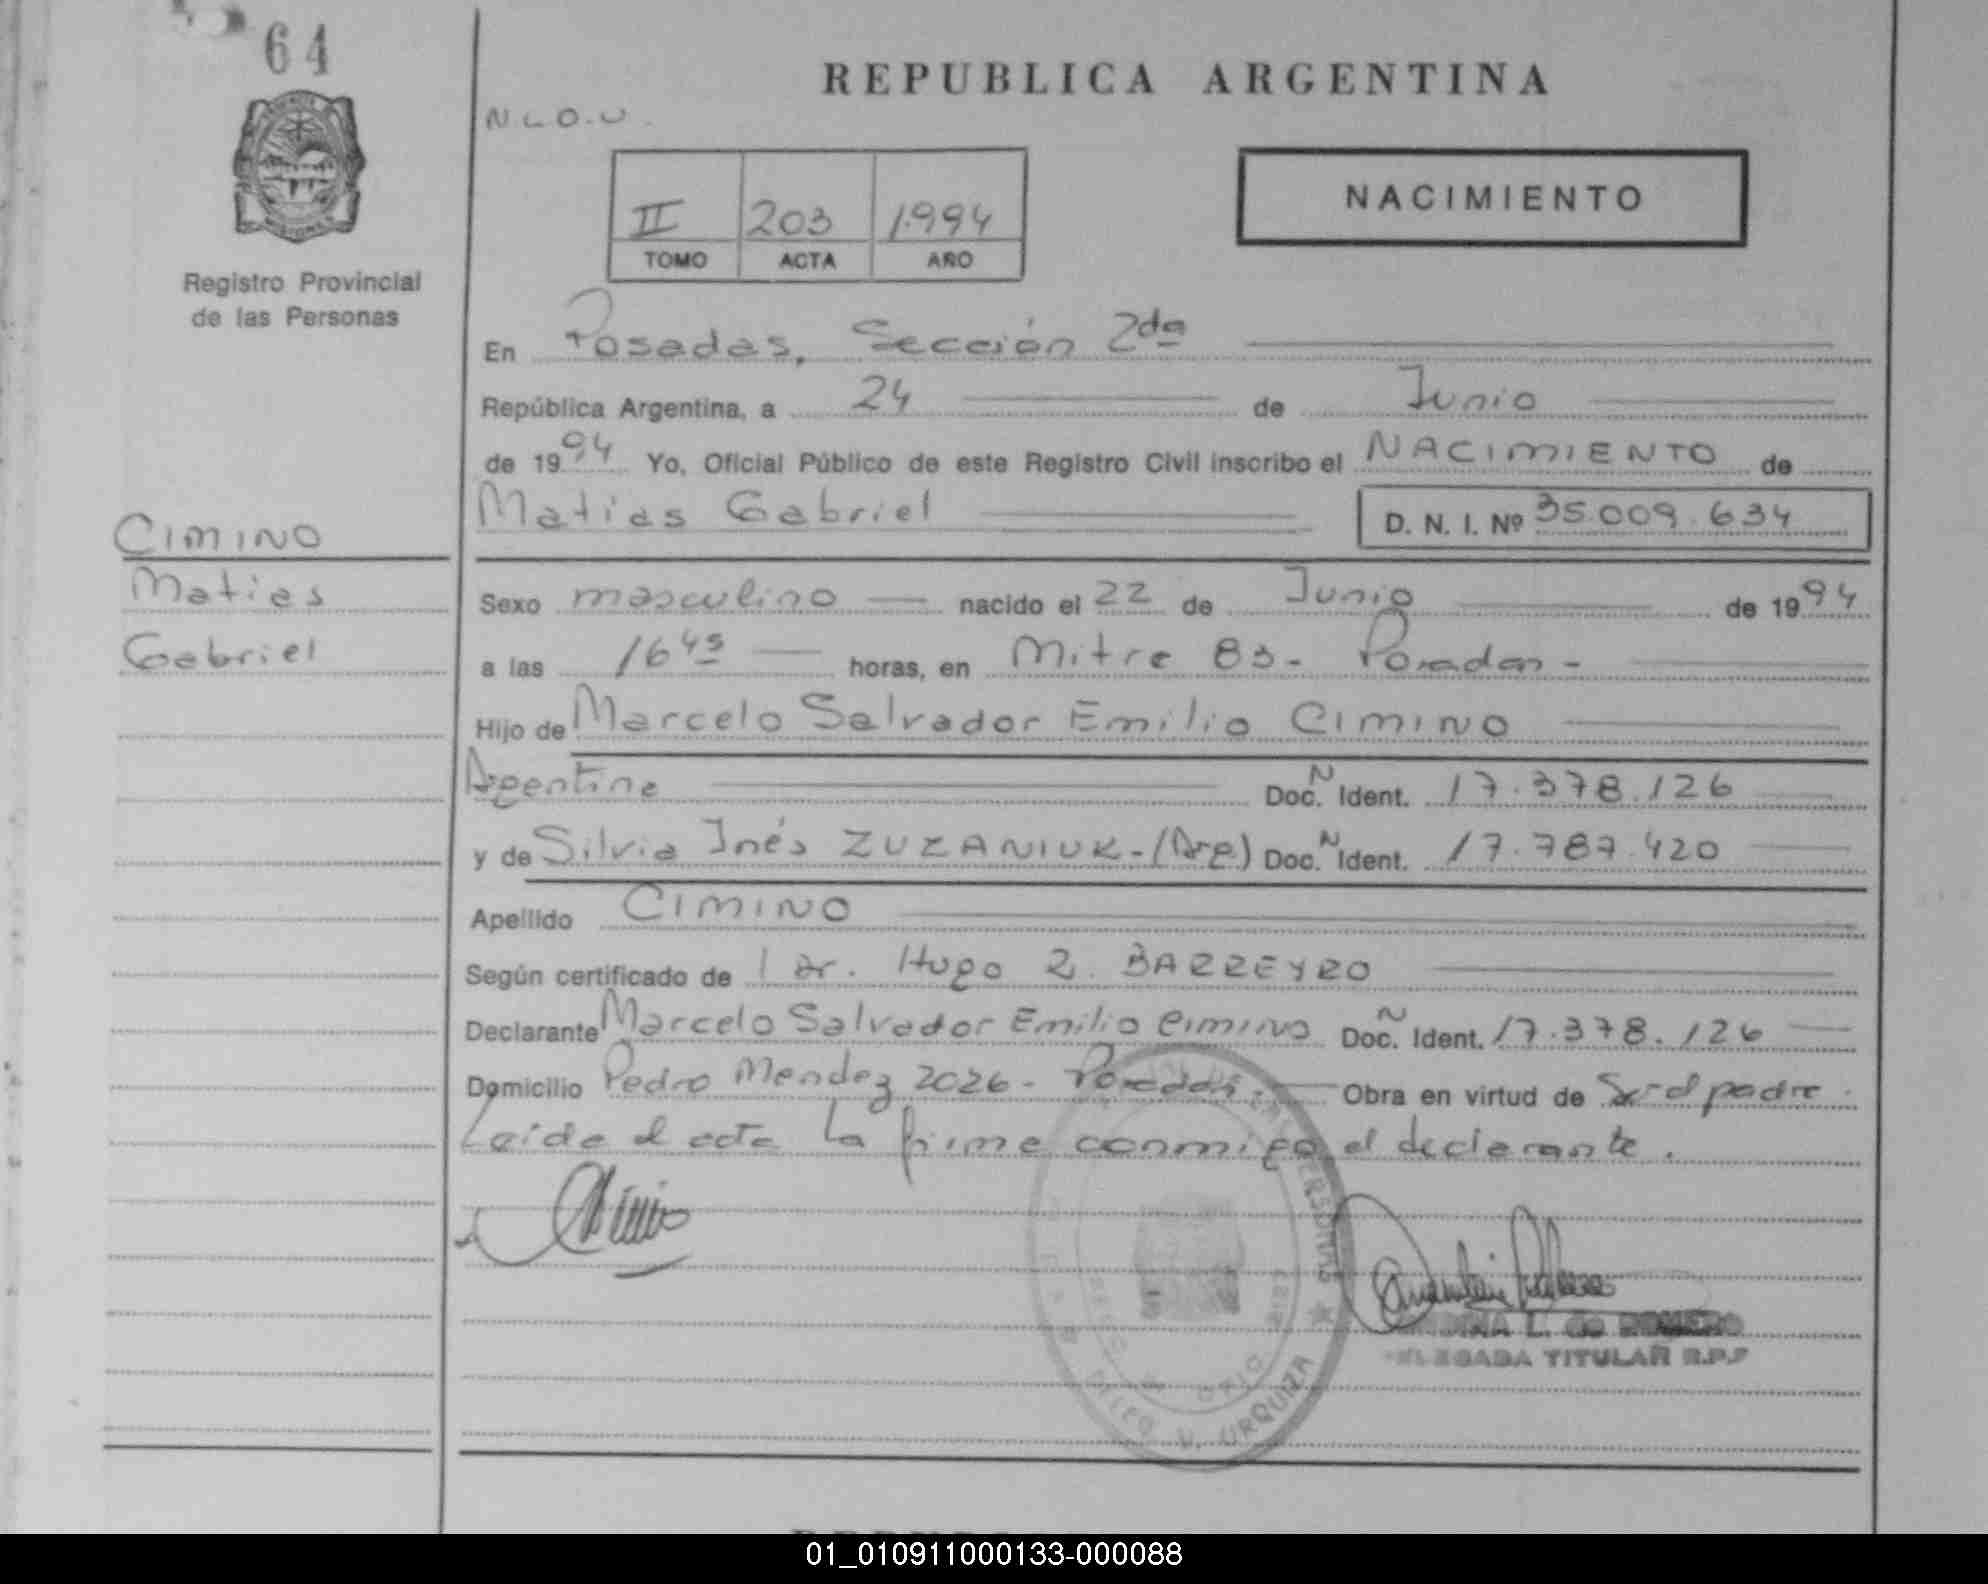 64
REPUBLICA ARGENTINA
N.L.O.U.
II 203 1.994
TOMO ACTA AÑO
NACIMIENTO
Registro Provincial
de las Personas
En Posadas, Sección 2da
República Argentina, a 24 de Junio
de 1994 Yo, Oficial Público de este Registro Civil inscribo el NACIMIENTO de
Matias Gabriel D. N. I. Nº 35.009.634
CIMINO
Matias
Gabriel
Sexo masculino nacido el 22 de Junio de 1994
a las 16 45 horas, en Mitre 83- Posadas-
Hijo de Marcelo Salvador Emilio CIMINO
Argentina Doc. N Ident. 17.378.126
y de Silvia Inés ZUZANIUK-(Arg) Doc. N Ident. 17.787.420
Apellido CIMINO
Según certificado de Dr. Hugo R. BARREYRO
Declarante Marcelo Salvador Emilio CIMINO Doc. N Ident. 17.378.126
Domicilio Pedro Mendez 2026- Posadas. Obra en virtud de Ser el padre.
Leída el acta la firma conmigo el declarante.
L. de ROMERO
DELEGADA TITULAR R.P.P
PERSONAS
V. URQUIZA
01_010911000133-000088